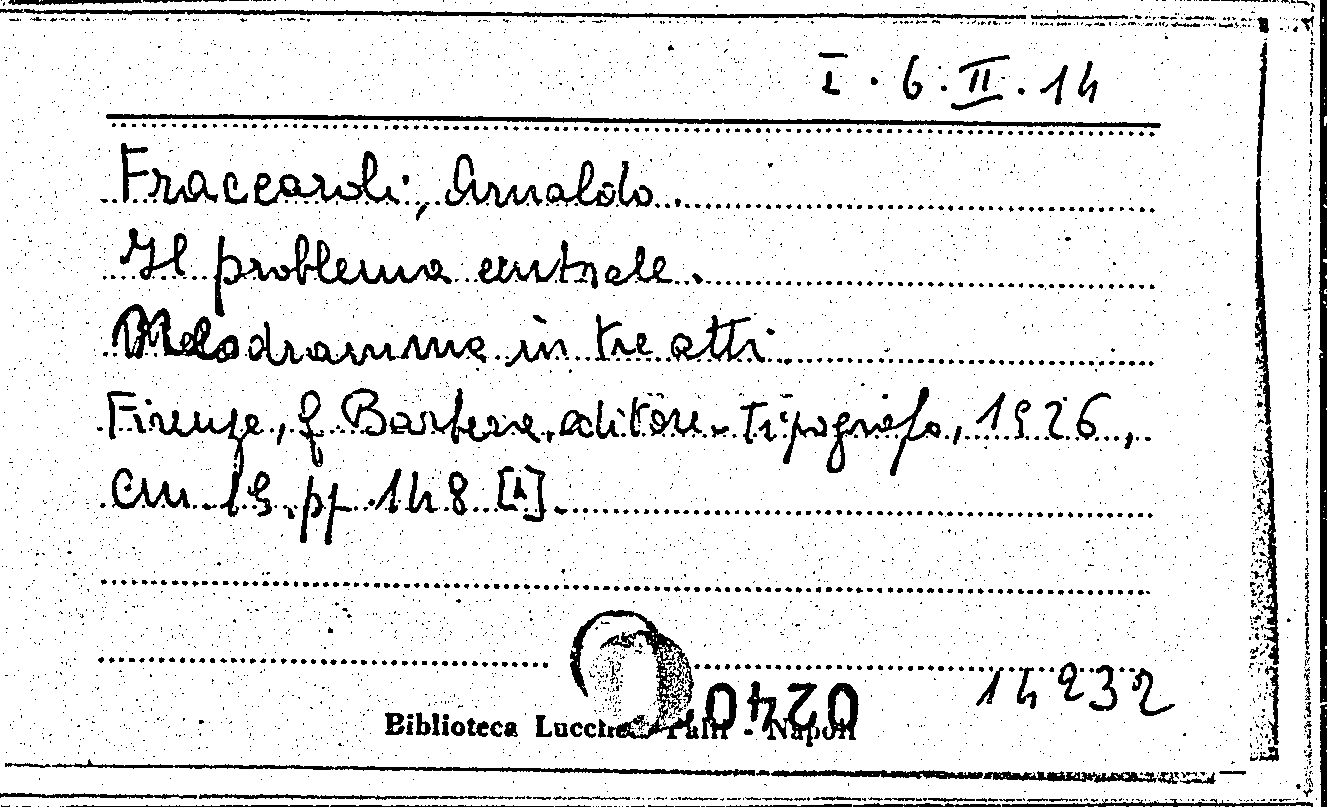 I. 6. II. 14
Fraccaroli, Arnaldo.
Il problema centrale.
Melodramma in tre atti.
Firenze, G. Barbera, editore-tipografo, 1926,
cm. 19, pp. 148 [4].
14232
0240
Biblioteca Lucchesi Palli - Napoli